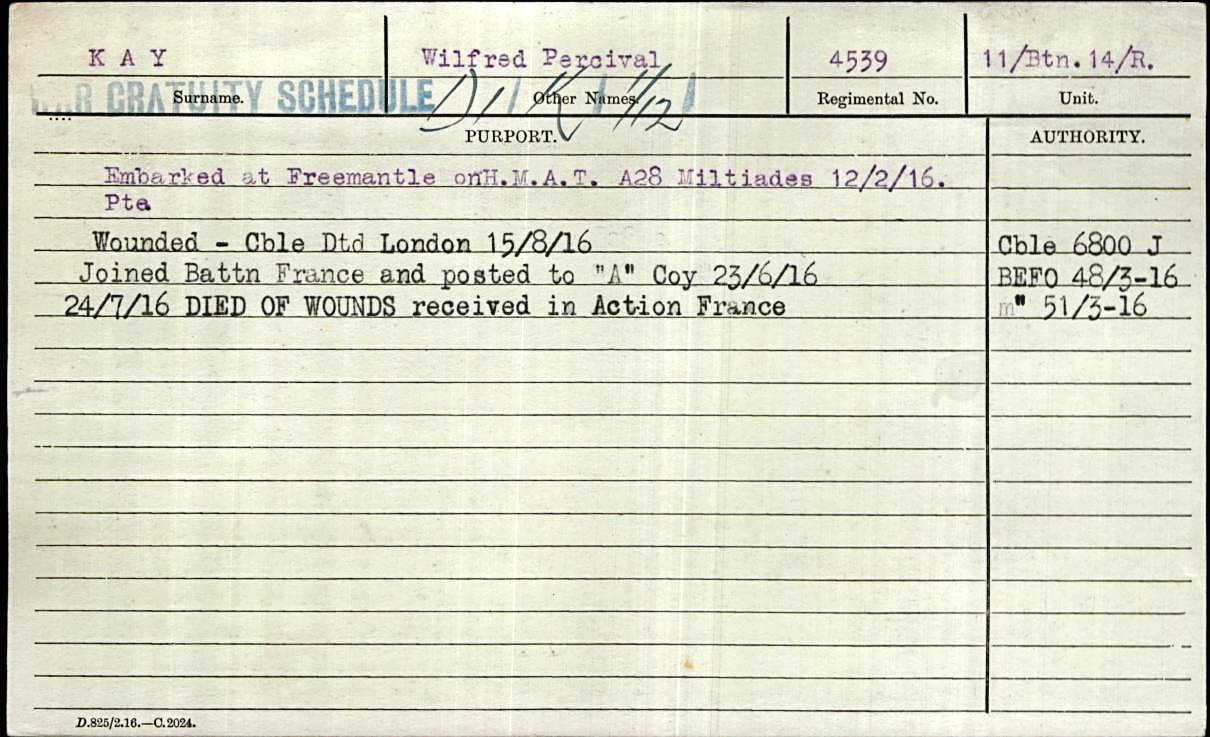 KAY Wilfred Percival 4539 11/Btn. 14/R.
WAR GRATUITY SCHEDULE
Surname. Other Names. Regimental No. Unit.
PURPORT. AUTHORITY.
Embarked at Freemantle onH.M.A.T. A28 Miltiades 12/2/16.
Pte
Wounded - Cble Dtd London 15/8/16 Cble 6800 J
Joined Battn France and posted to "A" Coy 23/6/16 BEFO 48/3-16
24/7/16 DIED OF WOUNDS received in Action France " 51/3-16
D.825/2.16.—C.2024.